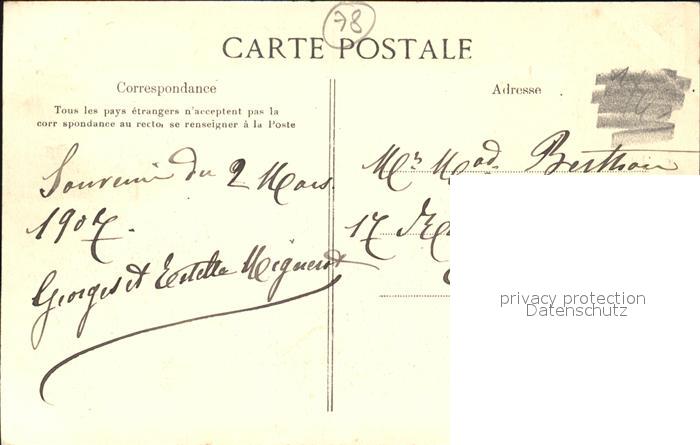 78
CARTE POSTALE
Correspondance
Tous les pays étrangers n'acceptent pas la
corr spondance au recto, se renseigner à la Poste
Souvenir du 2 Mars
1907.
Georges et Estelle Mignerot
Adresse
Mr Mad. Berthou
17
privacy protection
Datenschutz